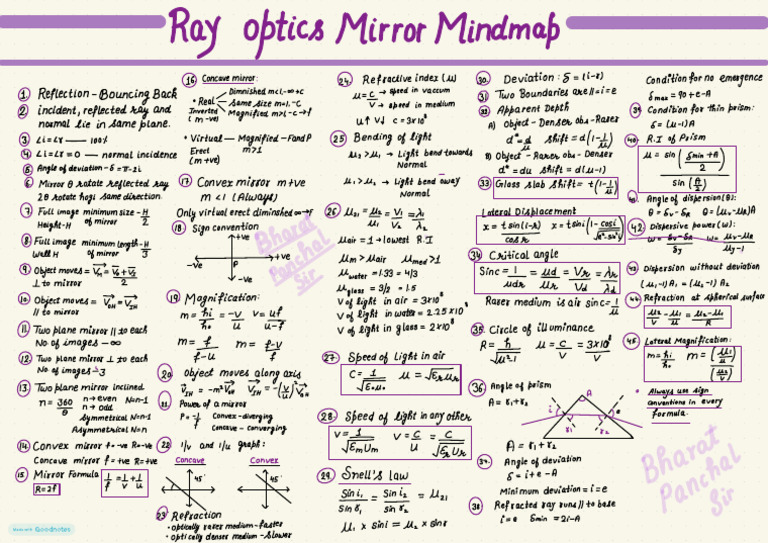 Ray optics Mirror Mindmap
1 Reflection - Bouncing Back
2 incident, reflected ray and
normal lie in same plane.
3 ∠i = ∠r — 100%
4 ∠i = ∠r = 0 — normal incidence
5 Angle of deviation - δ = π - 2i
6 Mirror θ rotate reflected ray
2θ rotate hogi same direction.
7 Full image minimum size - H/2
Height - H of mirror
8 Full image minimum length - H/3
Wall H of mirror
9 Object moves = Vm = (V0 + VI)/2
⊥ to mirror
10 Object moves = VOM = VIM
// to mirror
11 Two plane mirror // to each
No of images - ∞
12 Two plane mirror ⊥ to each
No of images - 3
13 Two plane mirror inclined
n = 360/θ n → even N = n-1
n → odd
Symmetrical N = n-1
Asymmetrical N = n
14 Convex mirror f = -ve R = -ve
Concave mirror f = +ve R = +ve
15 Mirror Formula 1/f = 1/v + 1/u
R = 2f
Made with Goodnotes
16 Concave mirror:
• Real Diminished m<1, -∞ → C
Inverted Same size m = 1, - C
(m -ve) Magnified m>1, - C → f
• Virtual — Magnified - F and P
Erect m>1
(m +ve)
17 Convex mirror m +ve
m < 1 (Always)
Only virtual erect diminished ∞ → F
18 Sign convention
+ve
-ve P +ve
-ve
Bharat
Panchal
Sir
19 Magnification:
m = hi/ho = -v/u v = uf/(u-f)
m = f/(f-u) m = (f-v)/f
20 Object moves along axis
VIM = -m² VOM VIM = -(v/u)² VOM
21 Power of a mirror
P = -1/f Convex - diverging
Concave - converging
22 1/v and 1/u graph:
Concave Convex
45° 45°
23 Refraction
• optically rarer medium - faster
• optically denser medium - slower
24. Refractive index (μ)
μ = C/V → speed in vaccum
→ speed in medium
μ↑ V↓ C = 3×10⁸
25 Bending of light
μ2 > μ1 → Light bend towards
Normal
μ1 > μ2 → Light bend away
Normal
26 μ21 = μ2/μ1 = V1/V2 = λ1/λ2
μair = 1 → lowest R.I
μm > μair μmed > 1
μwater = 1.33 = 4/3
μglass = 3/2 = 1.5
V of light in air = 3×10⁸
V of light in water = 2.25×10⁸
V of light in glass = 2×10⁸
27 Speed of Light in air
C = 1/√ε0μ0 μ = √εrμr
28 Speed of Light in any other
V = 1/√εmμm V = C/μ = C/√εrμr
29 Snell's law
Sin i1/Sin r1 = Sin i2/Sin r2 = μ21
μ1 × sin i = μ2 × sin r
30. Deviation: δ = (i-r)
31 Two Boundaries are // = i = e
32 Apparent Depth
A) Object - Denser obs - Rarer
d' = d/μ shift = d(1 - 1/μ)
B) Object - Rarer obs - Denser
d' = dμ shift = d(μ-1)
33 Glass slab Shift = t(1 - 1/μ)
Lateral Displacement
x = t sin(i-r)/cos r x = t sin i (1 - cos i/√(μ²-sin²i))
34 Critical angle
Sin c = 1/μdr = μd/μr = Vr/Vd = λr/λd
Rarer medium is air sin c = 1/μ
35 Circle of illuminance
R = h/√(μ²-1) μ = C/V = 3×10⁸/V
36 Angle of prism
A = r1 + r2
A
i r1 r2 e
A = r1 + r2
37. Angle of deviation
δ = i + e - A
Minimum deviation = i = e
38 Refracted ray runs // to base
i = e δmin = 2i - A
Condition for no emergence
δmax = 90 + e - A
39 Condition for thin prism:
δ = (μ-1)A
40 R.I of Prism
μ = sin((δmin + A)/2)/sin(A/2)
41 Angle of dispersion (θ):
θ = δv - δR θ = (μv - μR)A
42 Dispersive power (w):
w = (δv - δR)/δy w = (μv - μR)/(μy - 1)
43 Dispersion without deviation
(μ1 - 1)A1 = (μ2 - 1)A2
44 Refraction at spherical surface
μ2/v - μ1/u = (μ2 - μ1)/R
45 Lateral Magnification:
m = hi/ho m = (μ1/u)/(μ2/v)
* Always use sign
conventions in every
formula.
Bharat
Panchal
Sir